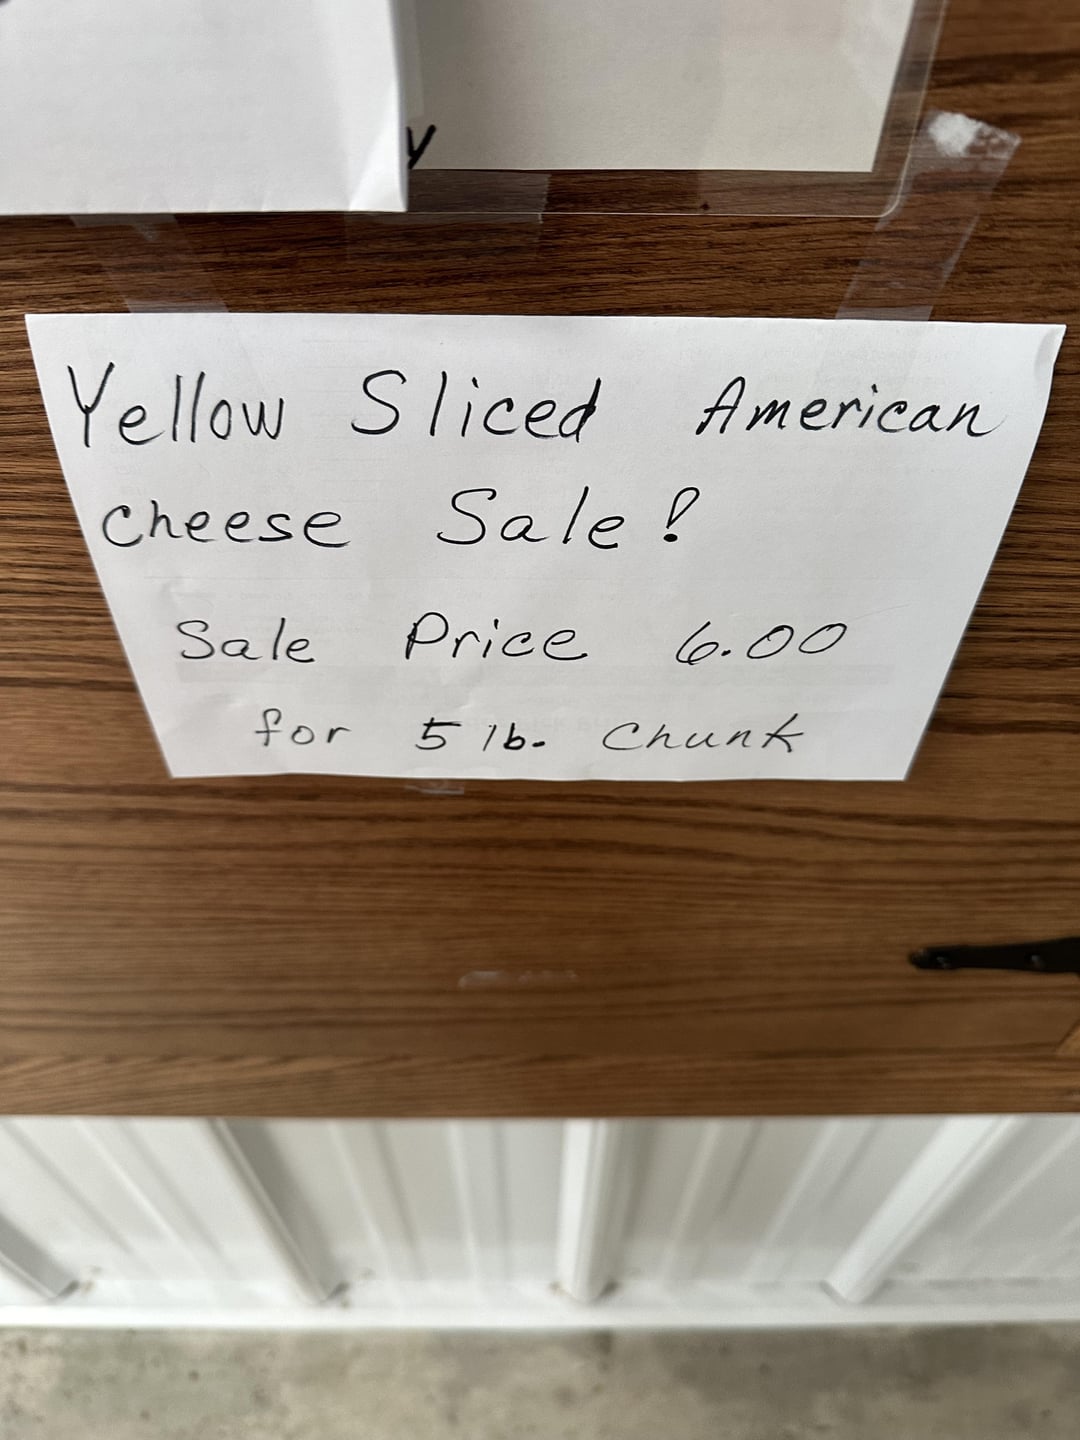 y
Yellow Sliced American
cheese Sale!
Sale Price 6.00
for 5 lb. Chunk